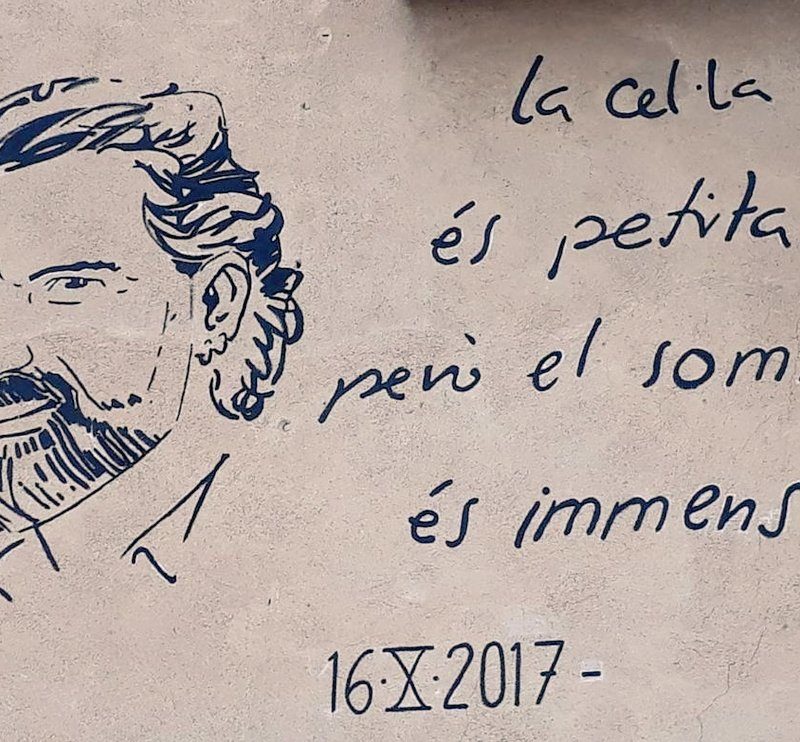 la cel·la
és petita
però el som
és immens
16·X·2017-